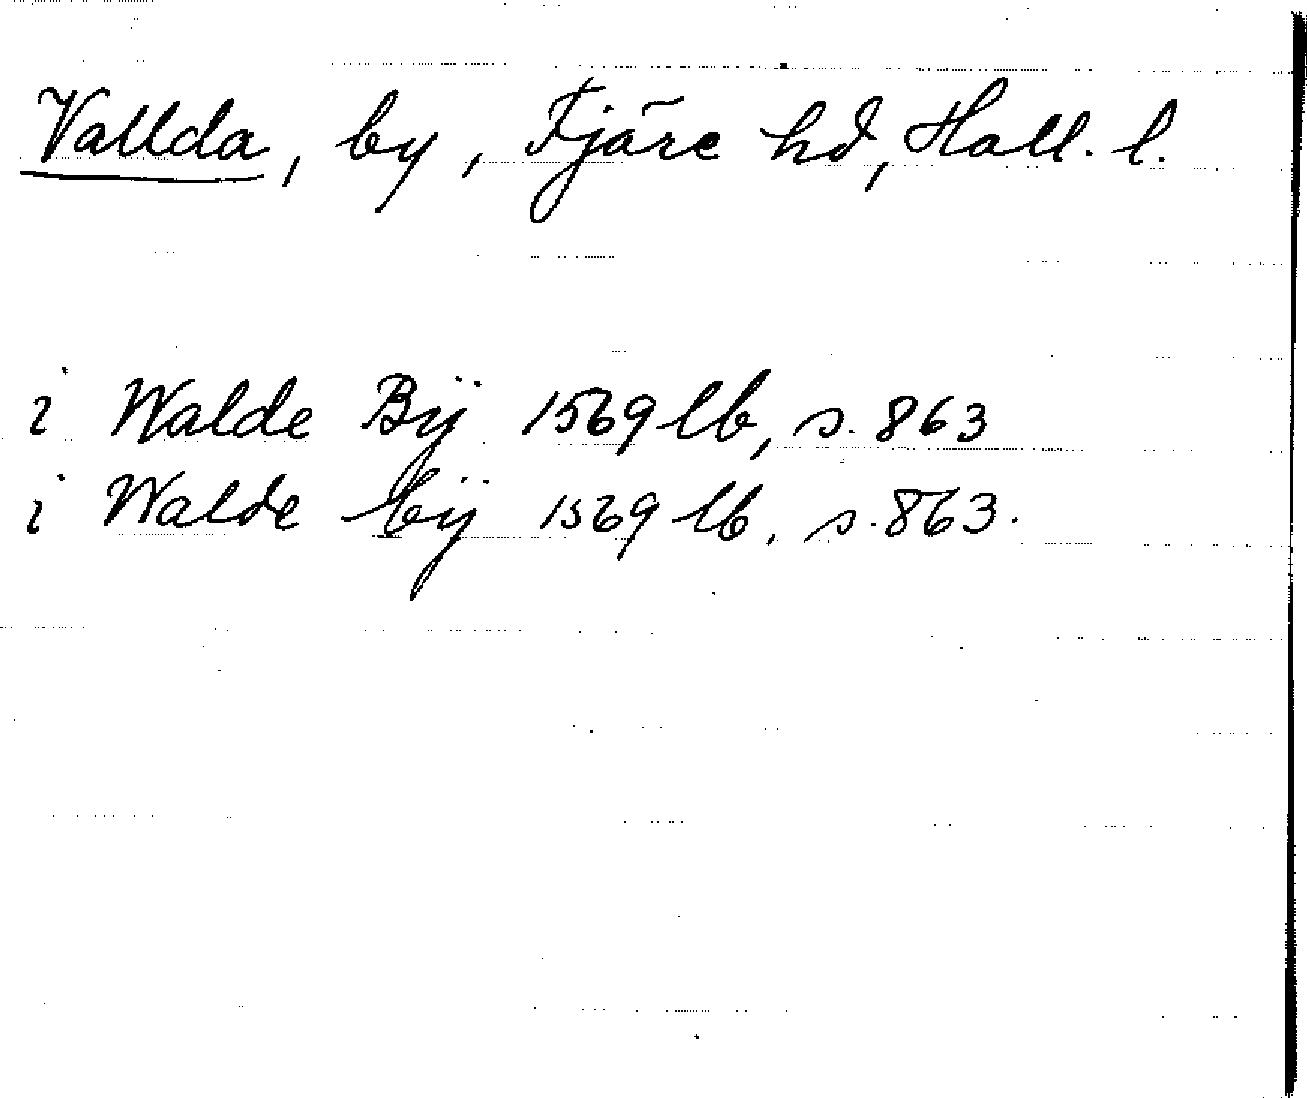 Vallda, by, Fjäre hd, Hall. l.
i Walde Bÿ 1569 lb, s. 863
i Walde bÿ 1569 lb, s. 863.